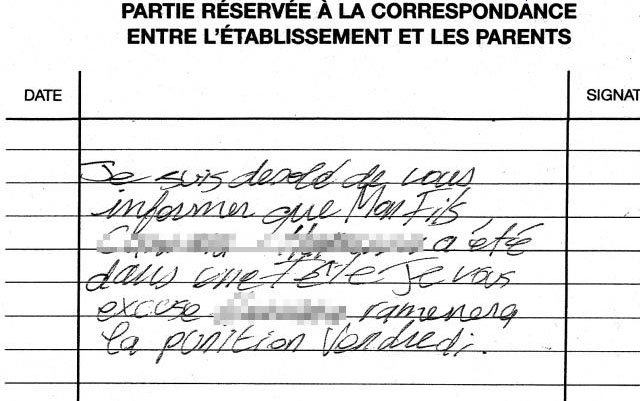 PARTIE RÉSERVÉE À LA CORRESPONDANCE
ENTRE L'ÉTABLISSEMENT ET LES PARENTS
DATE
SIGNAT
Je suis desolé de vous
informer que Mon Fils
a été
dans une fête Je vous
excuse ramenera
la punition Vendredi.